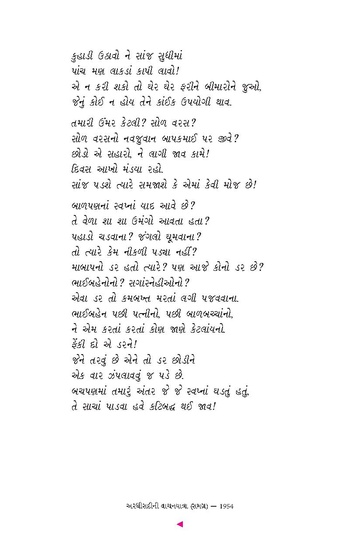 કુહાડી ઉઠાવો ને સાંજ સુધીમાં
પાંચ મણ લાકડાં કાપી લાવો!
એ ન કરી શકો તો ઘેર ઘેર ફરીને બીમારોને જુઓ,
જેનું કોઈ ન હોય તેને કાંઈક ઉપયોગી થાવ.
તમારી ઉંમર કેટલી? સોળ વરસ?
સોળ વરસનો નવજુવાન બાપકમાઈ પર જીવે?
છોડો એ સહારો, ને લાગી જાવ કામે!
દિવસ આખો મંડયા રહો.
સાંજ પડશે ત્યારે સમજાશે કે એમાં કેવી મોજ છે!
બાળપણનાં સ્વપ્નાં યાદ આવે છે?
તે વેળા શા શા ઉમંગો આવતા હતા?
પહાડો ચડવાના? જંગલો ઘૂમવાના?
તો ત્યારે કેમ નીકળી પડ્યા નહીં?
માબાપનો ડર હતો ત્યારે? પણ આજે કોનો ડર છે?
ભાઈબહેનોનો? સગાંસ્નેહીઓનો?
એવા ડર તો કમબખ્ત મરતાં લગી પજવવાના.
ભાઈબહેન પછી પત્નીનો, પછી બાળબચ્ચાંનો,
ને એમ કરતાં કરતાં કોણ જાણે કેટલાંયનો.
ફેંકી દો એ ડરને!
જેને તરવું છે એને તો ડર છોડીને
એક વાર ઝંપલાવવું જ પડે છે.
બચપણમાં તમારું અંતર જે જે સ્વપ્નાં ઘડતું હતું,
તે સાચાં પાડવા હવે કટિબદ્ધ થઈ જાવ!
અરધીસદીની વાચનયાત્રા (સમગ્ર) — 1954